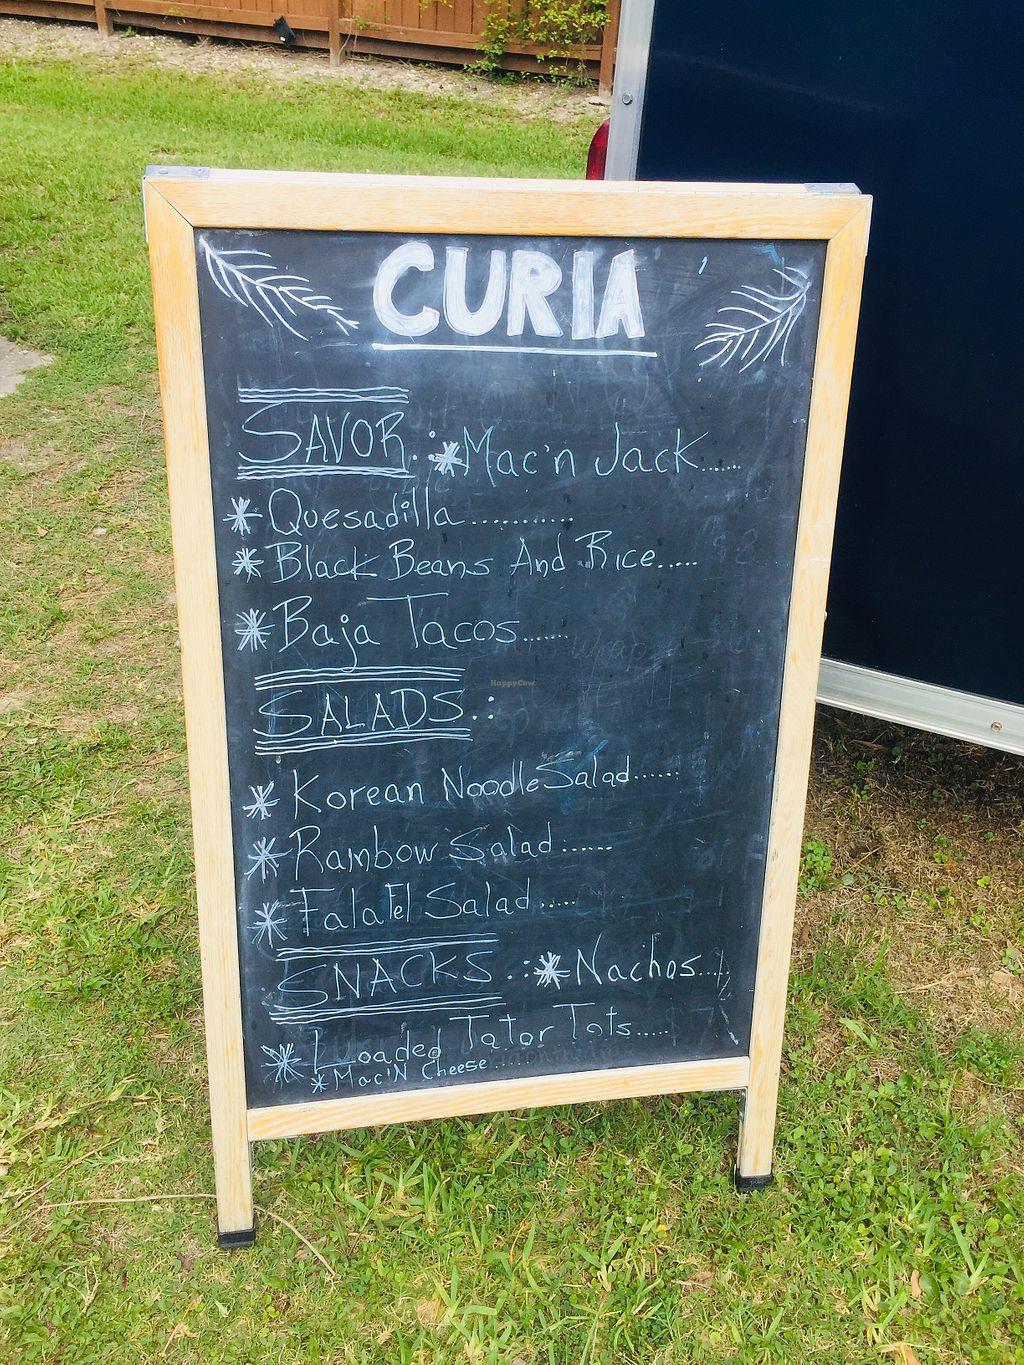 CURIA
SAVOR.:*Mac'n Jack......
*Quesadilla............
*Black Beans And Rice.....
*Baja Tacos......
HappyCow
SALADS.:
*Korean Noodle Salad......
*Rainbow Salad......
*Falafel Salad.....
SNACKS.:*Nachos....
*Loaded Tator Tots.....
*Mac'N Cheese......